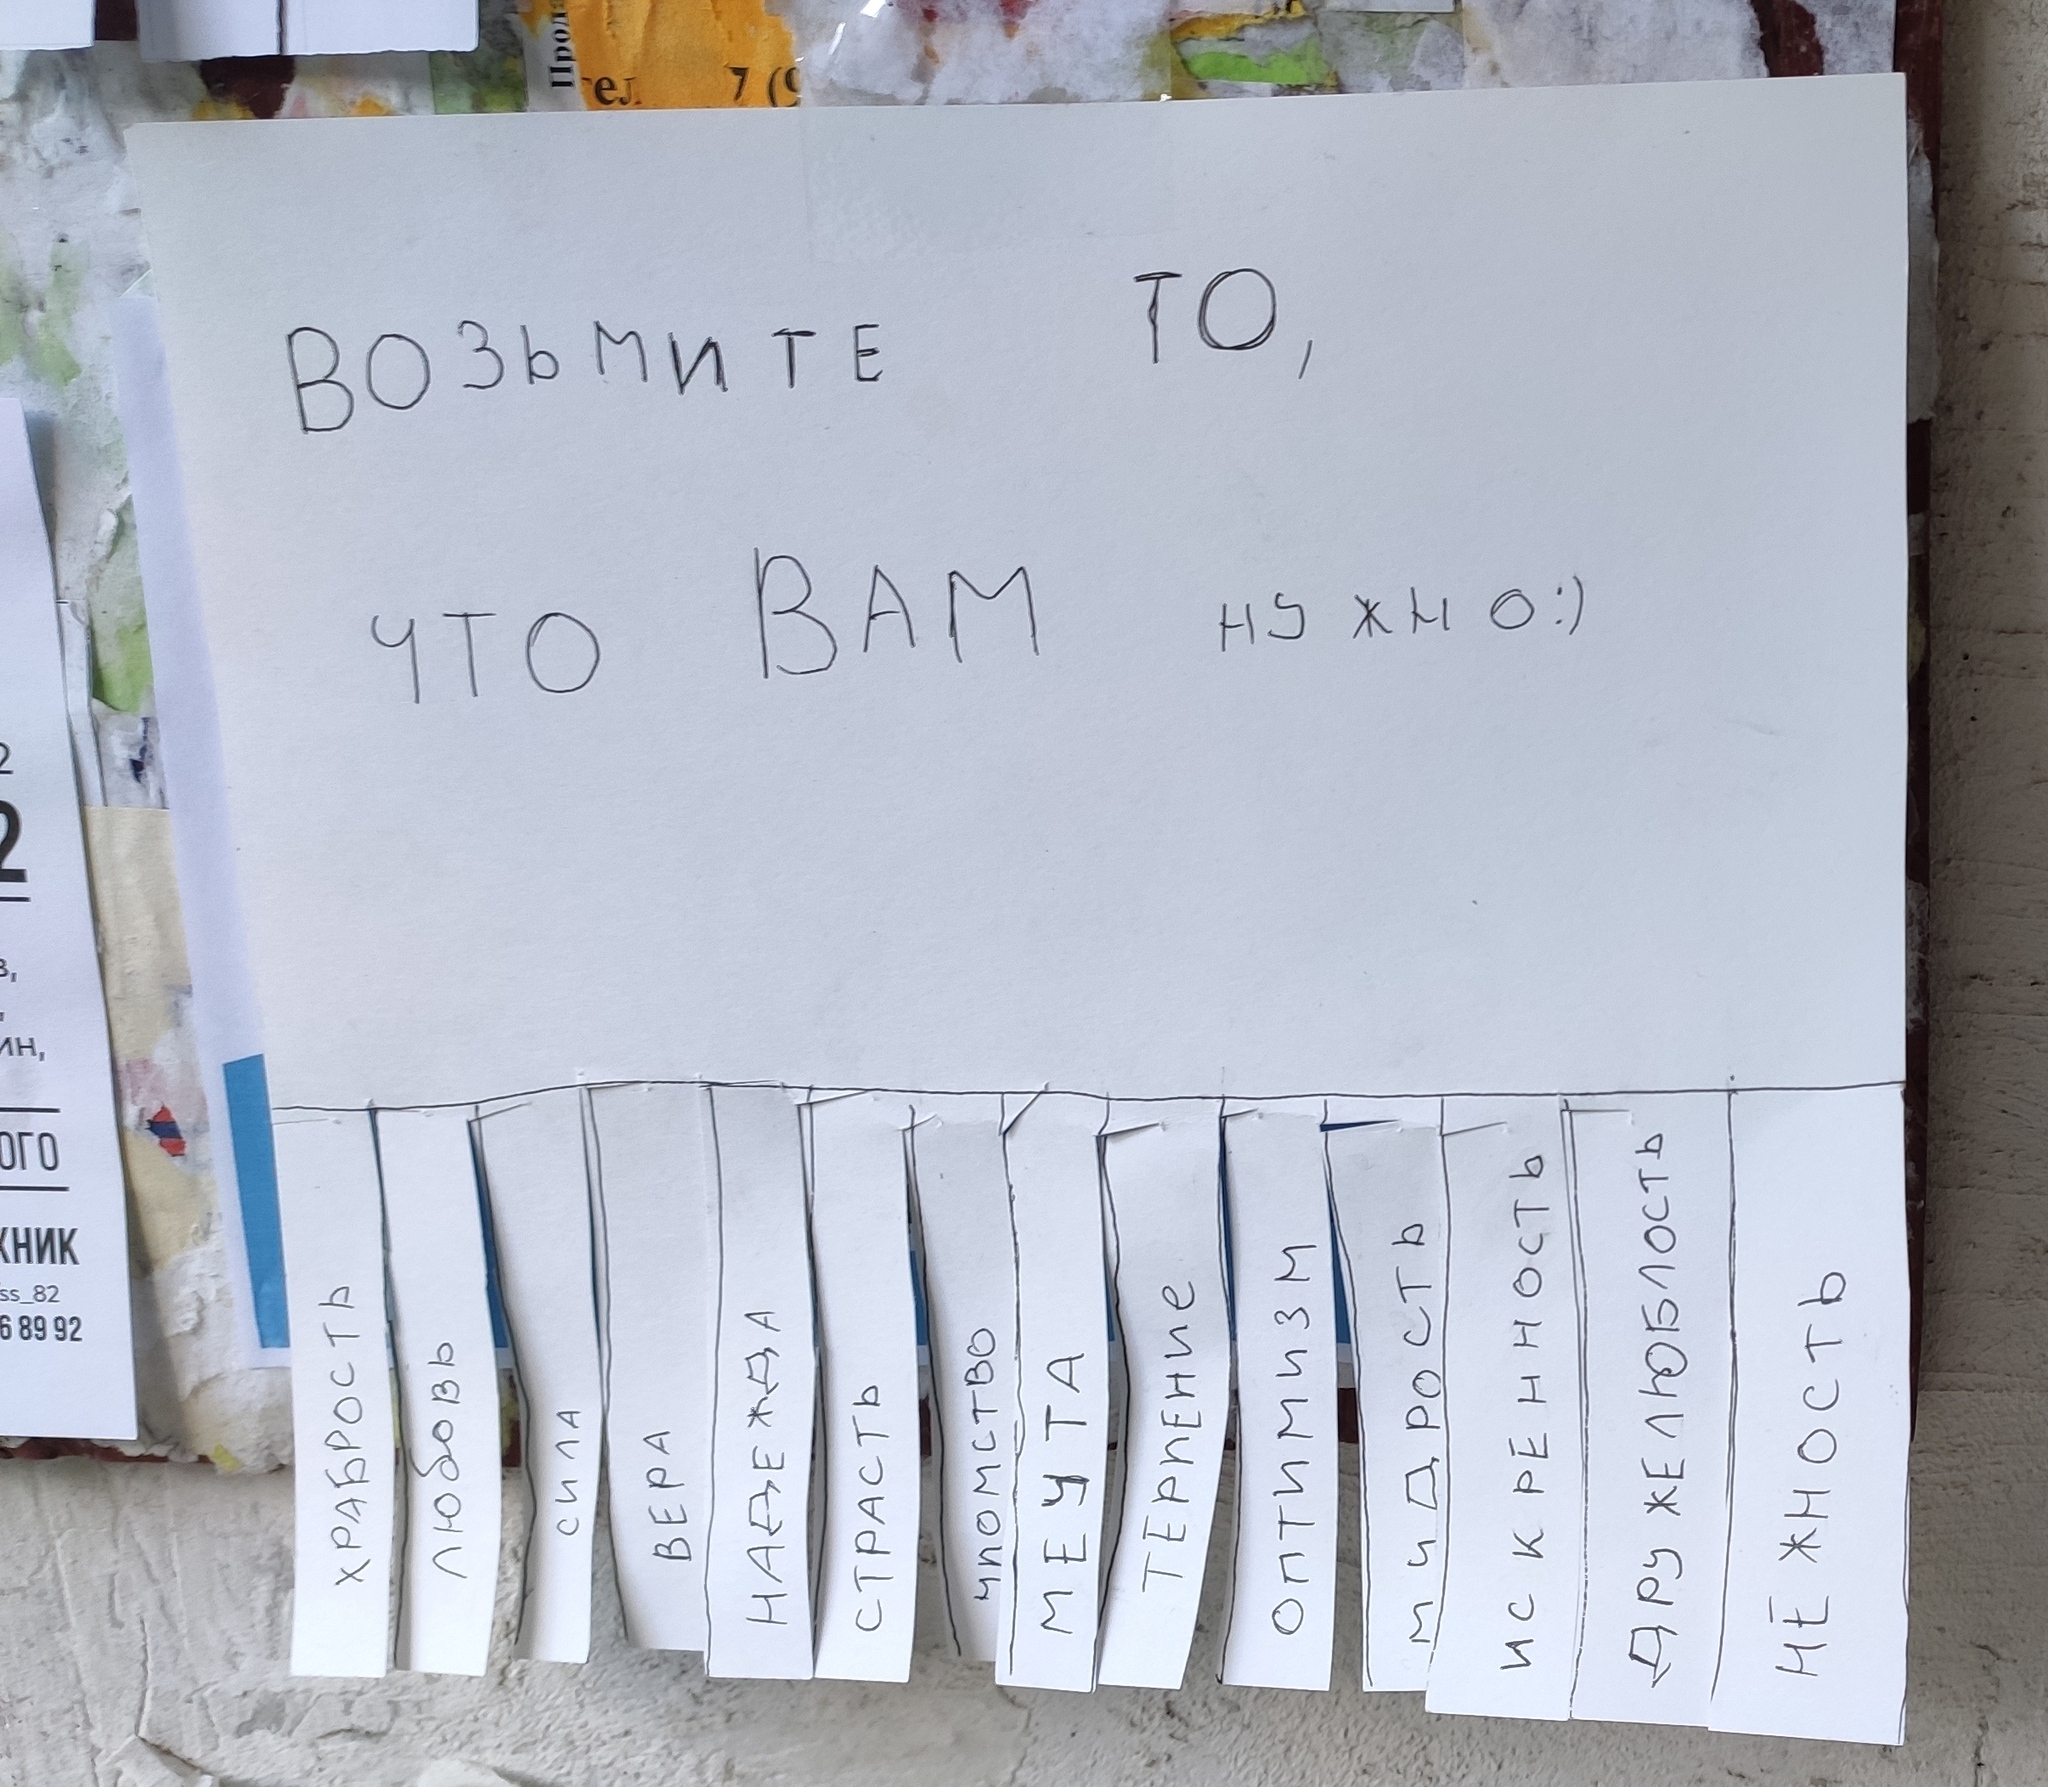 Прод
тел. 7 (9
ВОЗЬМИТЕ ТО,
ЧТО ВАМ НУЖНО:)
2
2
в,
ин,
ОГО
ХНИК
ss_82
6 89 92
ХРАБРОСТЬ
ЛЮБОВЬ
СИЛА
ВЕРА
НАДЕЖДА
СТРАСТЬ
УПОМСТВО
МЕЧТА
ТЕРПЕНИЕ
ОПТИМИЗМ
МУДРОСТЬ
ИСКРЕННОСТЬ
ДРУЖЕЛЮБЛОСТЬ
НЕЖНОСТЬ